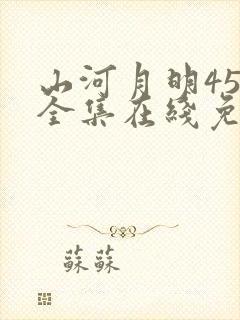 山河月明45
全集在线免
蘇蘇